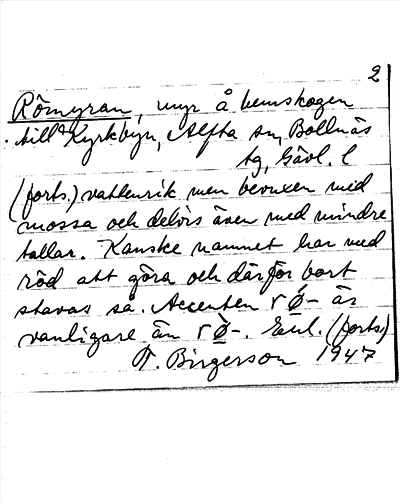 2
Römyran, myr å hemskogen
till Kyrkbyn, Alfta sn, Bollnäs
tg, Gävl. l
(forts.) vattenrik men bevuxen med
mossa och delvis även med mindre
tallar. Kanske namnet har med
röd att göra och därför bort
stavas så. Accenten rǿ- är
vanligare än rø̀-. Enl. (forts.)
T. Birgerson 1947